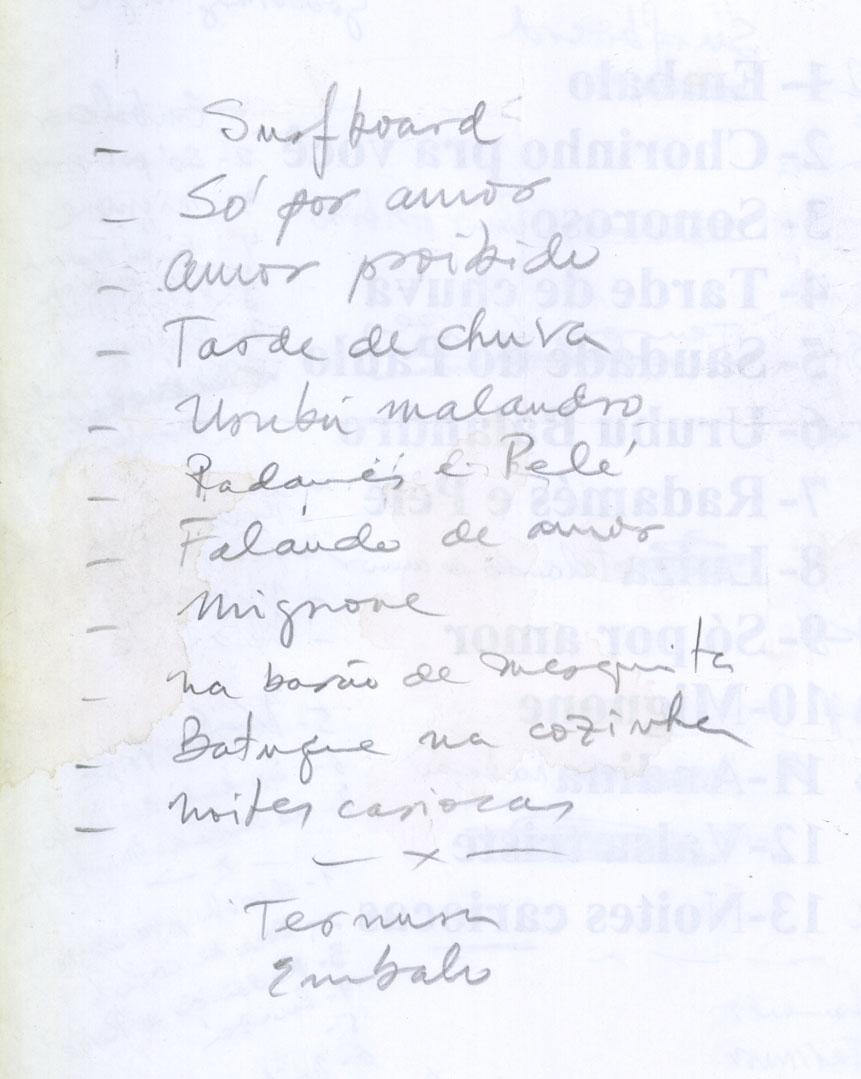 – Surfboard
– Só por amor
– Amor proibido
– Tarde de chuva
– Urubú malandro
– Radamés e Pelé
– Falando de amor
– Mignone
– na barão de mesquita
– Batuque na cozinha
– noites cariocas
— x —
Ternura
Embalo
1- Embalo
2- Chorinho pra você
3- Sonoroso
4- Tarde de chuva
5- Saudade do Paulo
6- Urubu Balandro
7- Radamés e Pelé
8- Luiza
9- Só por amor
10-Mignone
11-Andina
12-Valsa triste
13-Noites cariocas